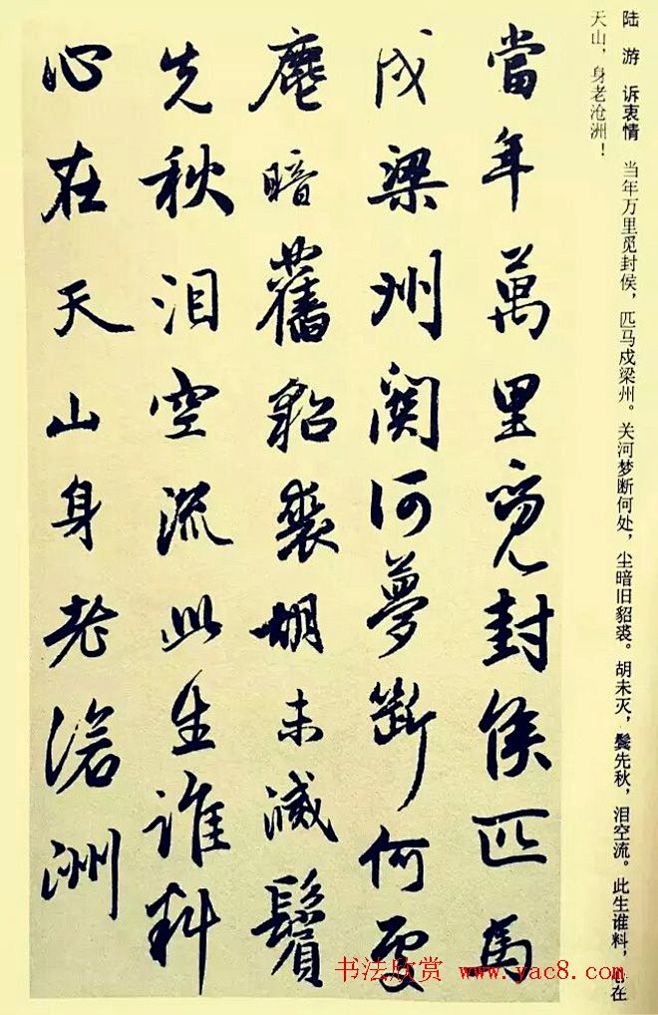 陆 游 诉衷情 当年万里觅封侯，匹马戍梁州。关河梦断何处，尘暗旧貂裘。胡未灭，鬓先秋，泪空流。此生谁料，心在
天山，身老沧洲！
當年萬里覓封侯匹馬
戍梁州關河夢斷何處
塵暗舊貂裘胡未滅鬢
先秋泪空流此生谁料
心在天山身老滄洲
书法欣赏 www.yac8.com